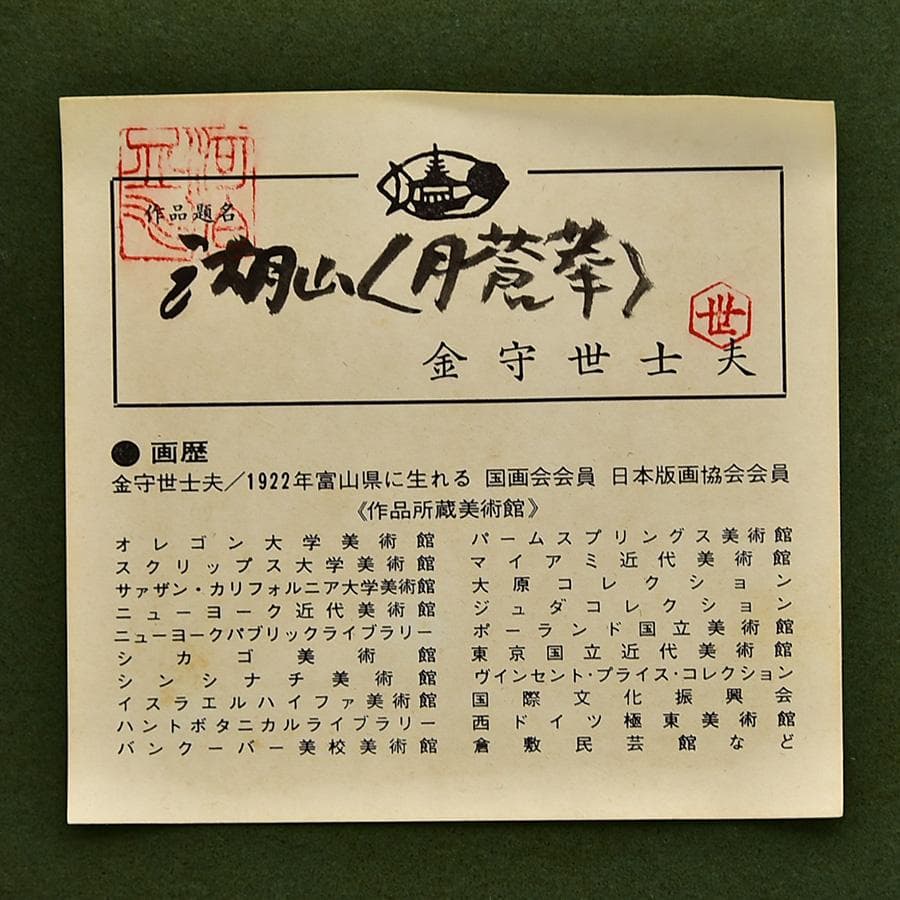 作品題名
湖山〈月蒼華〉
世
金守世士夫
●画歴
金守世士夫／1922年富山県に生れる 国画会会員 日本版画協会会員
《作品所蔵美術館》
オレゴン大学美術館
スクリップス大学美術館
サァザン・カリフォルニア大学美術館
ニューヨーク近代美術館
ニューヨークパブリックライブラリー
シカゴ美術館
シンシナチ美術館
イスラエルハイファ美術館
ハントボタニカルライブラリー
バンクーバー美校美術館
パームスプリングス美術館
マイアミ近代美術館
大原コレクション
ジュダコレクション
ポーランド国立美術館
東京国立近代美術館
ヴインセント・プライス・コレクション
国際文化振興会
西ドイツ極東美術館
倉敷民芸館など